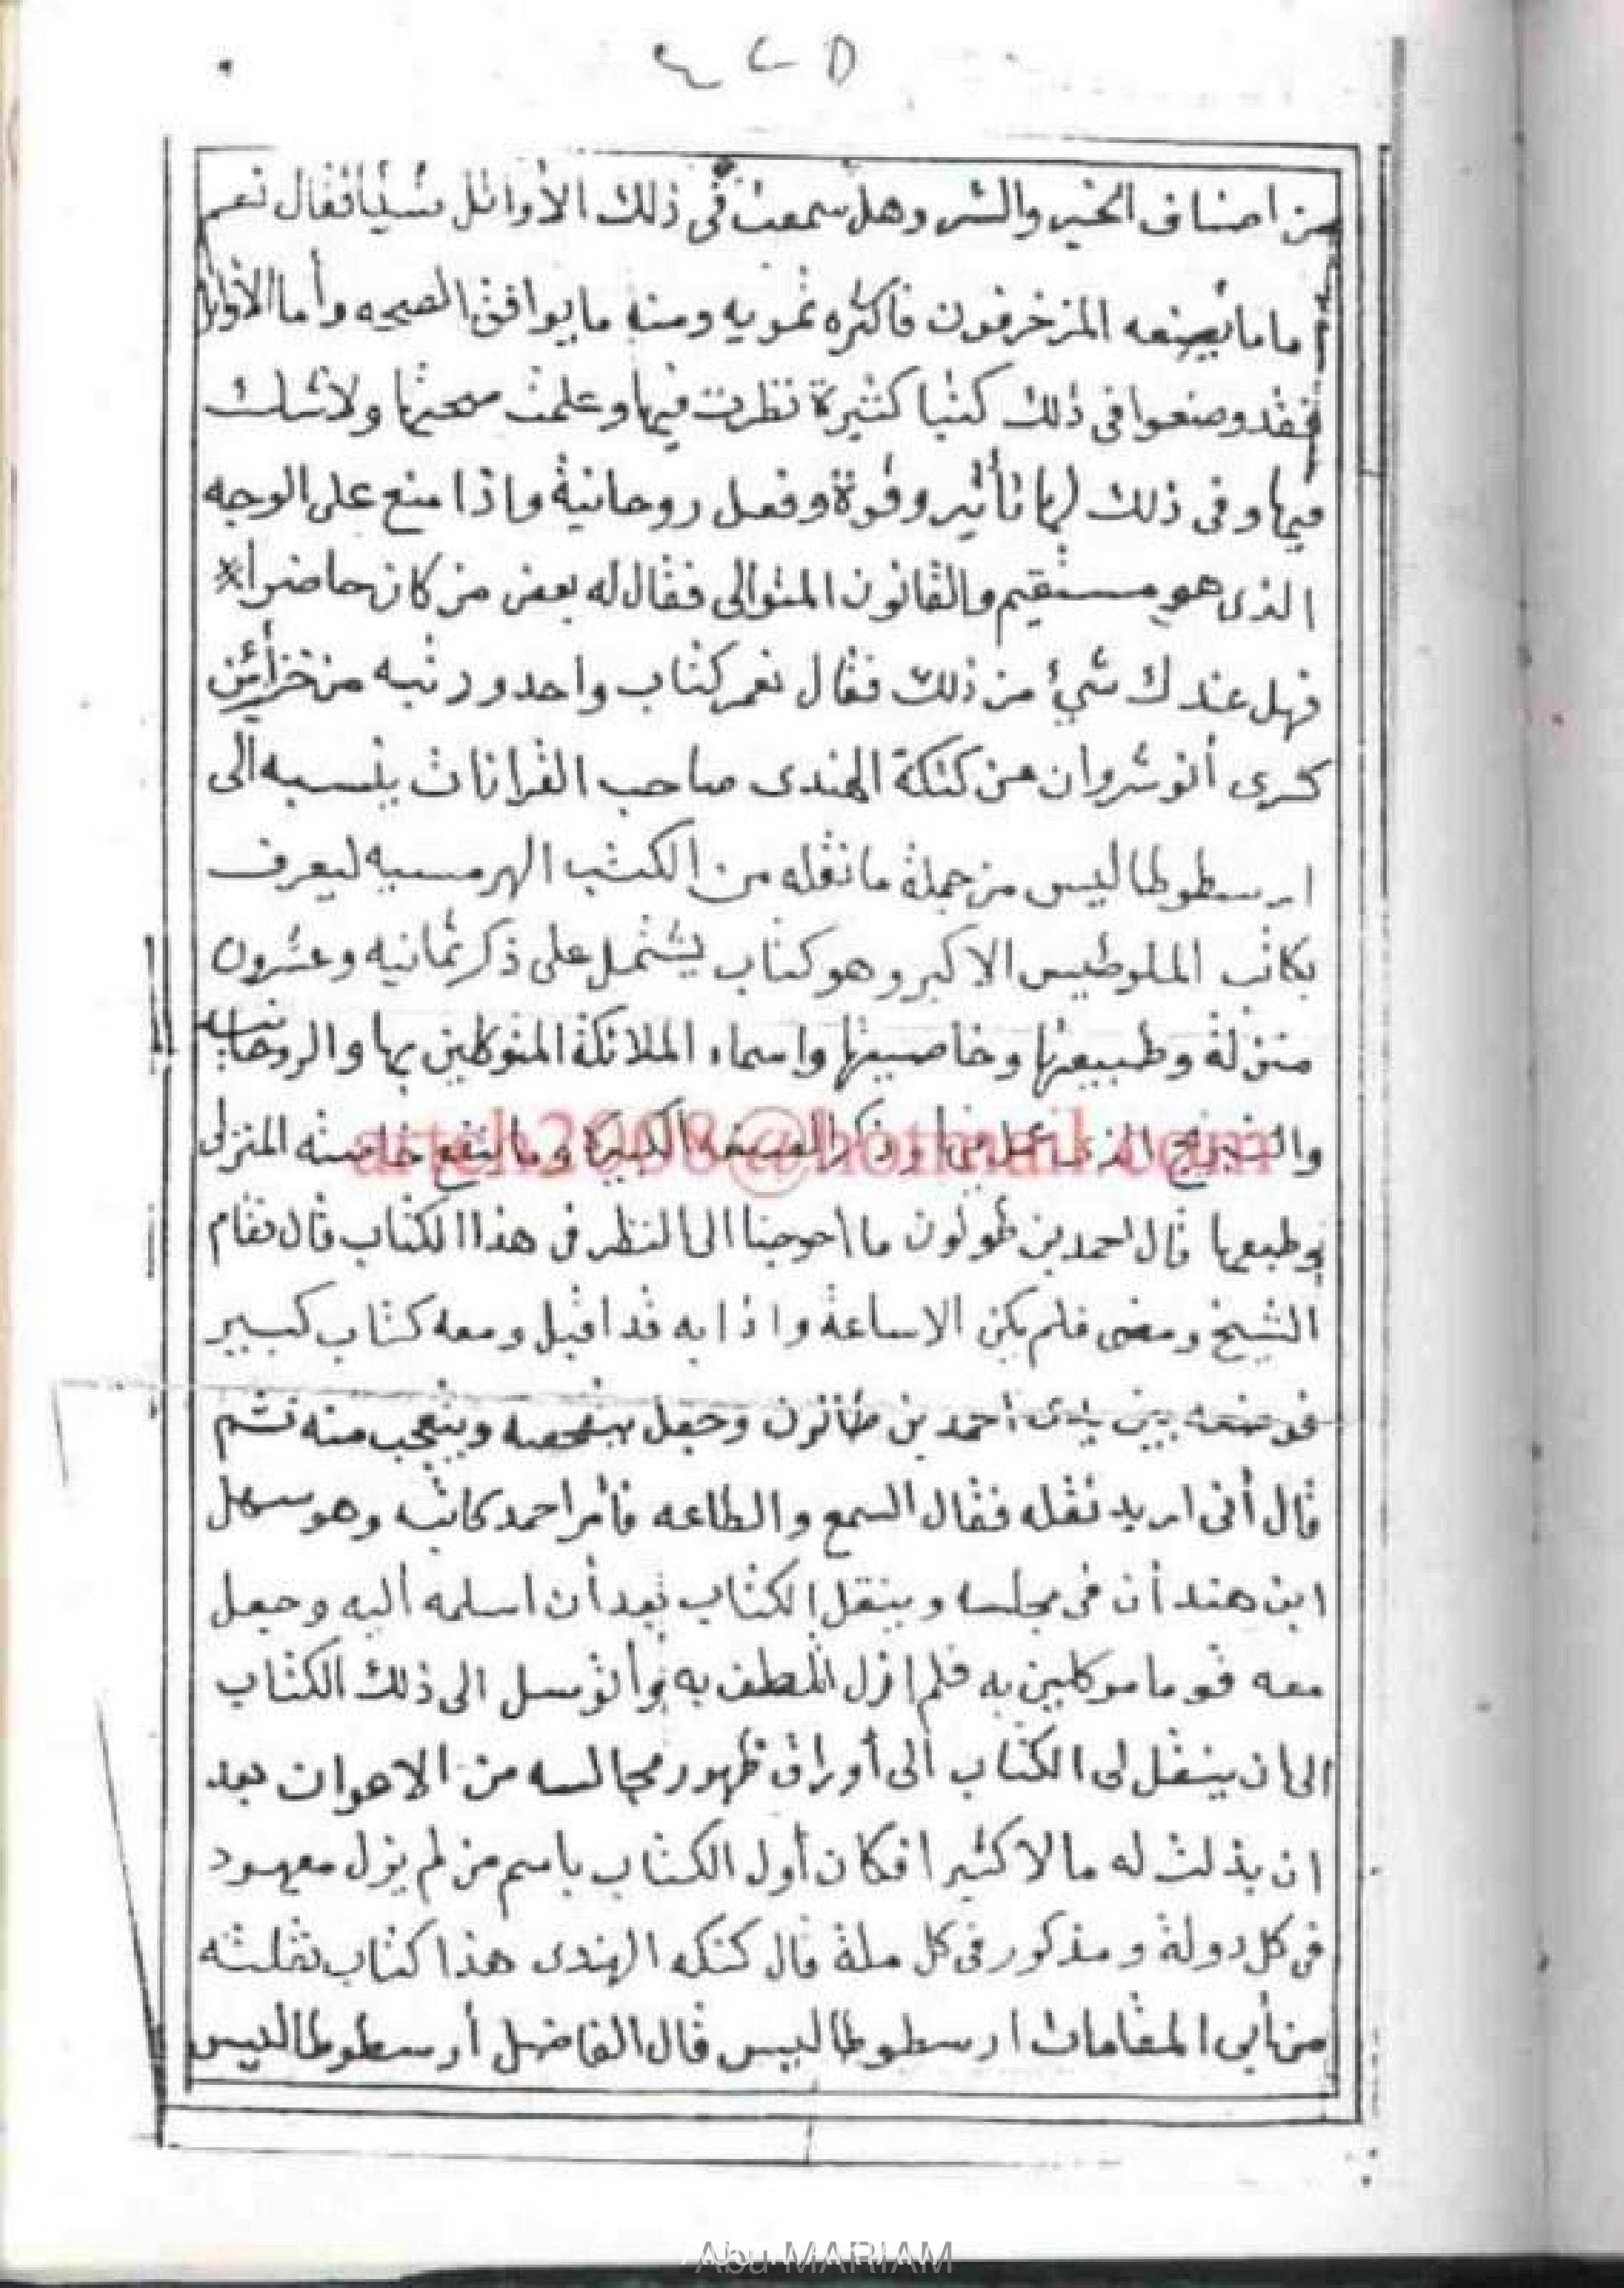 من اصناف الخير والشر وهل سمعت فى ذلك الأوائل شيئا فقال نعم
ما ما يصنعه المزخرفون فاكثره تمويه ومنه ما يوافق الصحه وأما الأوائل
فقد وضعوا فى ذلك كتبا كثيرة نظرت فيها وعلمت صحتها ولاشك
فيها وفى ذلك لها تأثير وقوة وفعل روحانية واذا منع على الوجه
الذى هو مستقيم والقانون المتوالى فقال له بعض من كان حاضرا*
فهل عندك شئ من ذلك فقال نعم كتاب واحد ورثته من خزائن
كسرى أنوشروان عن كنكة الهندى صاحب القرانات ينسبه الى
ارسطوطاليس من جملة ما نقله من الكتب الهرمسيه ليعرف
بكاتب الملوطيس الاكبر وهو كتاب يشتمل على ذكر ثمانيه وعشرون
منزلة وطبيعتها وخاصيتها واسماء الملائكة المتوكلين بها والروحانيه
artch2008@hotmail.com
وما لنفع خاصته المنزلى
وطبعها قال احمد بن طولون ما احوجنا الى النظر فى هذا الكتاب قال فقام
الشيخ ومضى فلم يكن الا ساعة واذا به قد اقبل ومعه كتاب كبير
فوضعه بين يدى احمد بن وجعل يتفحصه ويتعجب منه ثم
قال أنى اريد نقله فقال السمع والطاعه فأمر احمد كاتبه وهو سهل
ابن هند أن فى مجلسه وينقل الكتاب بعد أن اسلمه أليه وجعل
معه قوما موكلين به فلم ازل اتلطف به وأتوسل الى ذلك الكتاب
الى ان ينقل لى الكتاب ألى أوراق ظهور مجالسه من الاعوان بعد
ان بذلت له مالا كثيرا فكان أول الكتاب باسم من لم يزل معهود
فى كل دولة ومذكور فى كل ملة قال كنكه الهندى هذا كتاب نقلته
من أبى المقامات ارسطوطاليس قال الفاضل أرسطوطاليس
Abu MARIAM